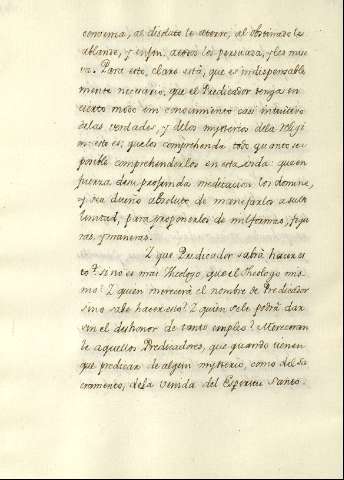 convenza, al disoluto le aterre, al obstinado le
ablande, y enfin, atodos los persuada, y les mue
va. Para esto, claro está, que es indispensable
mente necesario, que el Predicador tenga en
cierto modo un conocimiento casi intuitivo
delas verdades, y delos mysterios dela Religi
on: esto es; que los comprehenda todo quanto es
posible comprehenderlos en esta vida: que en
fuerza desu profunda meditacion los domine,
y sea dueño absoluto de manejarlos a su vo
luntad, para proponerlos de mil formas, figu
ras, y maneras.
Y que Predicador sabrá hacer es
to? si no es mas Theologo, que el Theologo mis
mo? Y quien merecerá el nombre de Predicador
sino sabe hacer eso? Y quien sele podrá dar
sin el deshonor de tanto empleo? Mereceran
le aquellos Predicadores, que quando tienen
que predicar de algun mysterio, como del Sa
cramento, dela venida del Espiritu Santo.